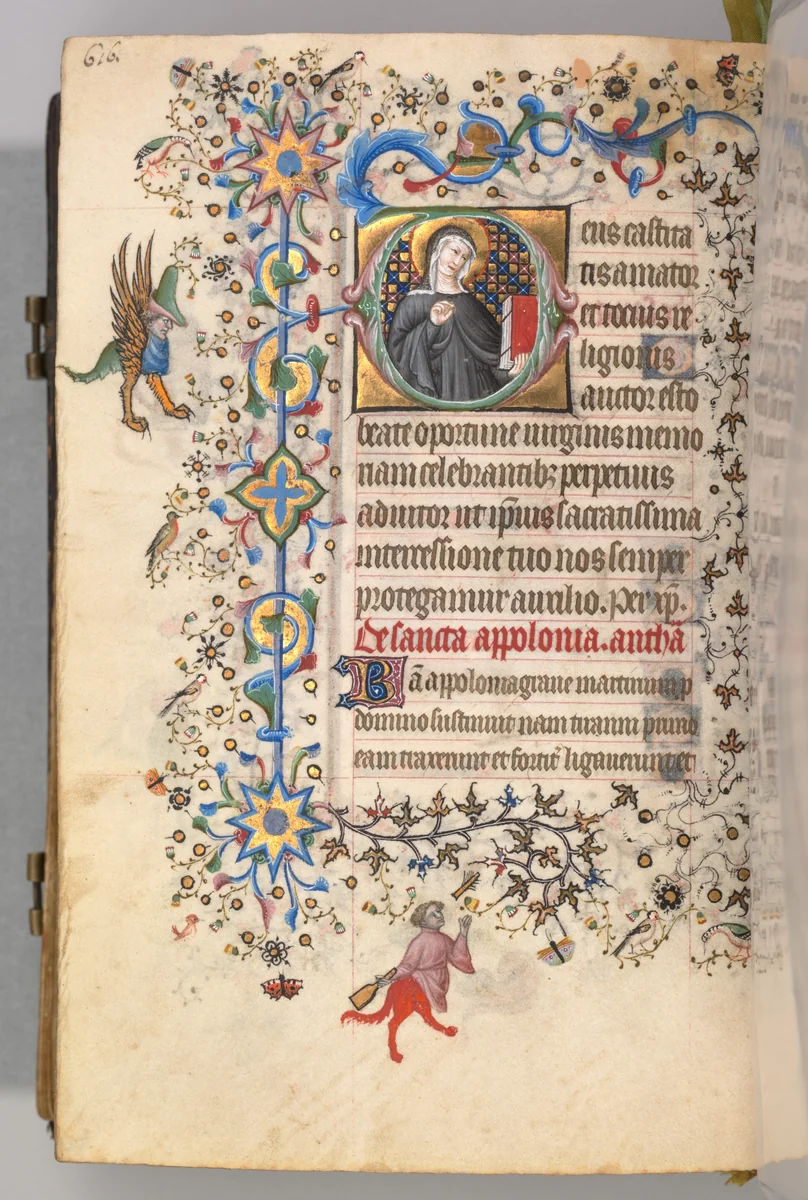 616.
eus castita
tis amator
et tocius re
ligionis
auctor esto
beate oportune uirginis memo
riam celebrantibꝫ perpetuus
adiutor ut ip̃ius sacratissima
intercessione tuo nos semper
protegamur auxilio. Per xp̃.
De sancta appolonia. anthã
Bã appolonia graue martirium p
domino sustinuit nam tiranni primo
eam traxerunt et fortit᷑ ligauerunt et